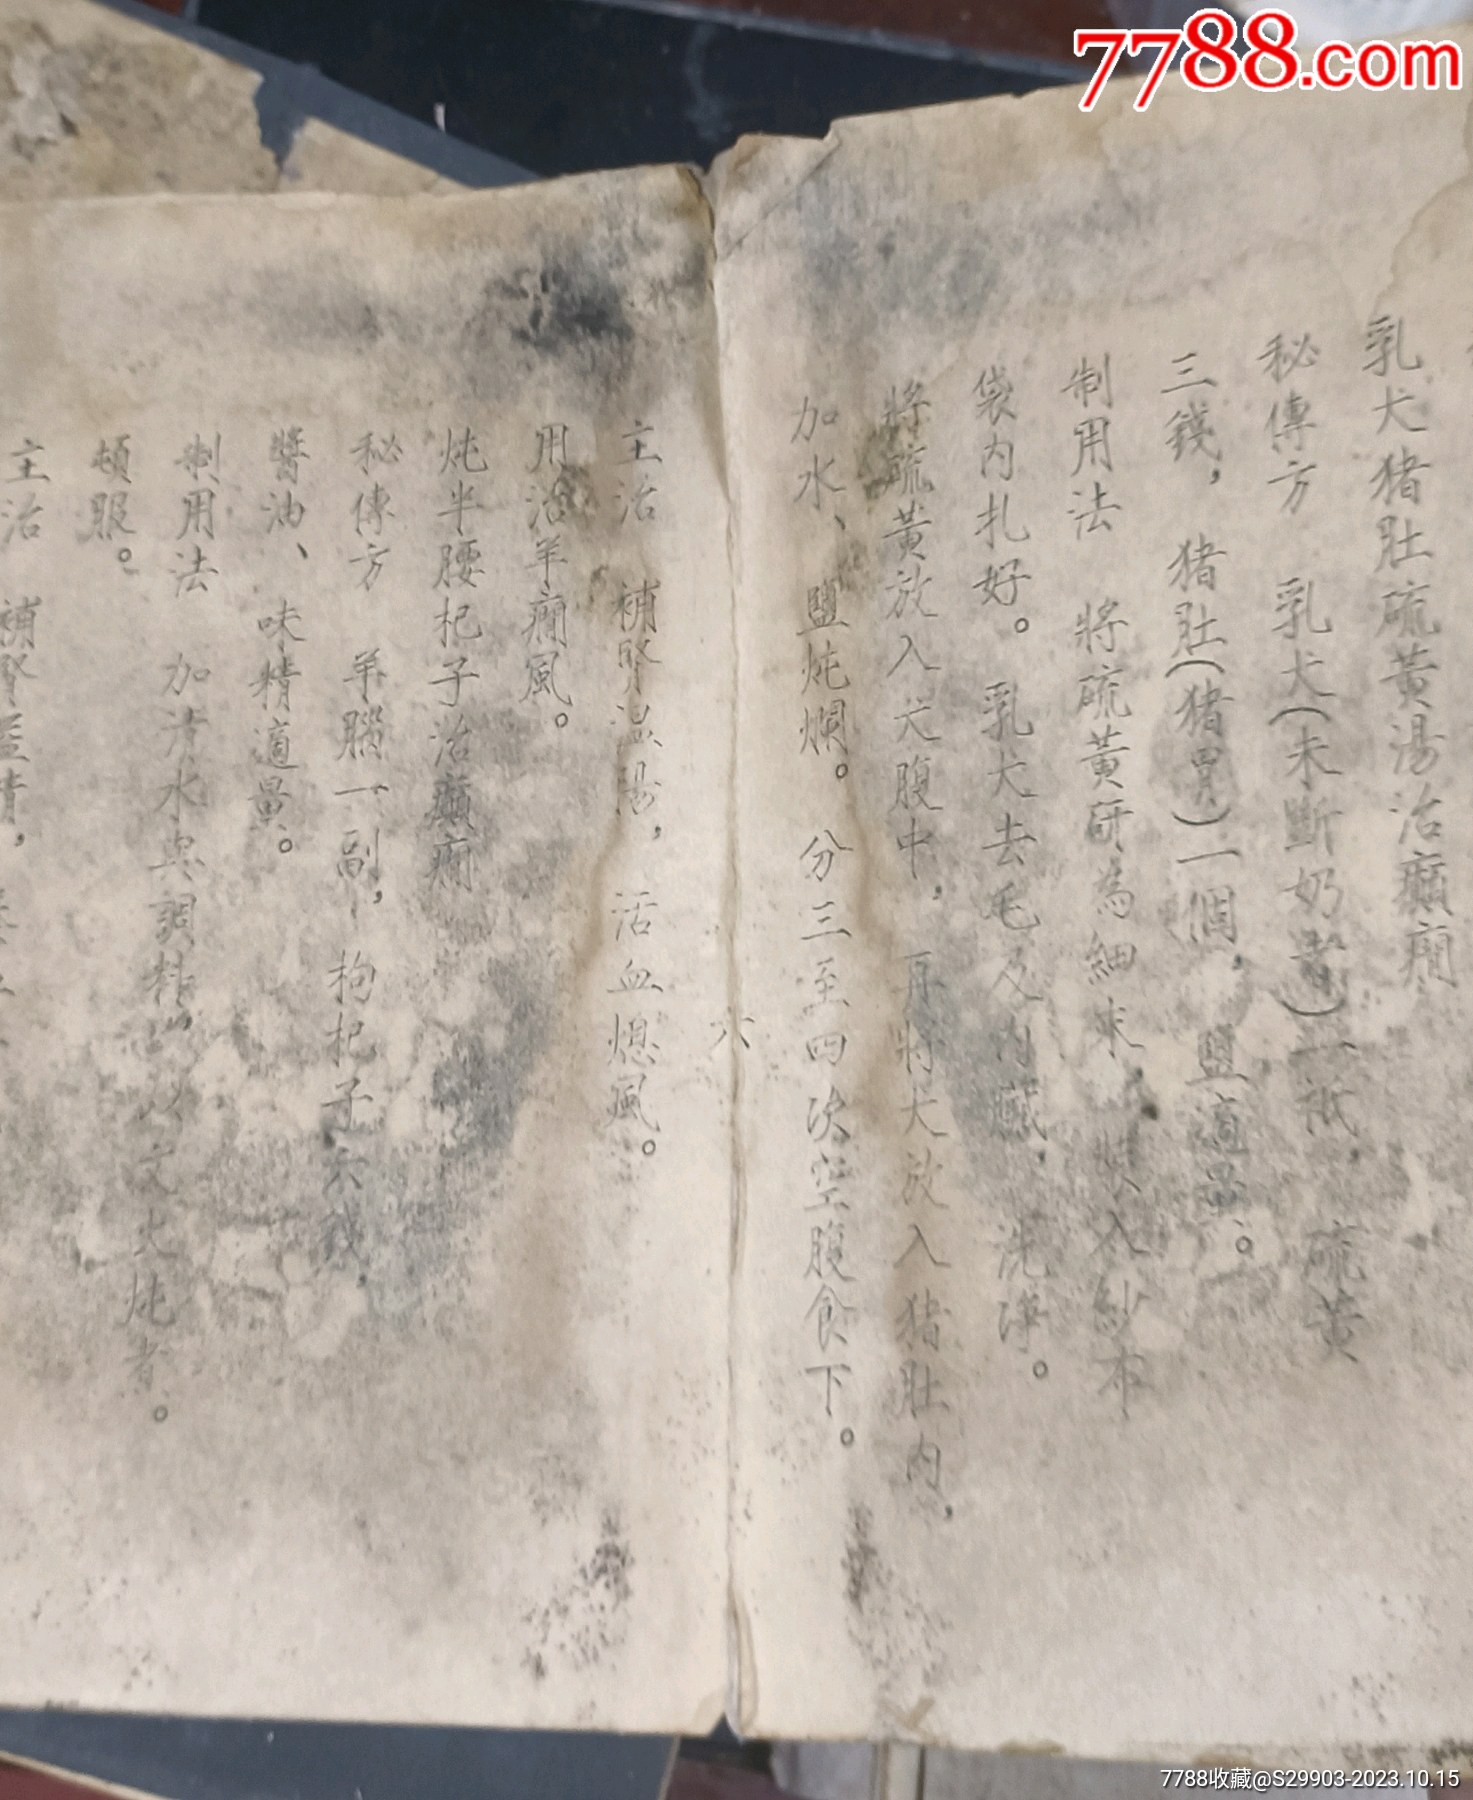 7788.com
乳犬猪肚硫黃湯治癲癎
秘傳方 乳犬(未斷奶者)一祇，硫黃
三錢，猪肚(猪胃)一個，鹽適量。
制用法 將硫黃研為細末，裝入紗布
袋内扎好。乳犬去毛及内臟，洗淨。
將硫黃放入犬腹中，再將犬放入猪肚内，
加水、鹽炖爛。分三至四次空腹食下。
六
主治 補腎溫陽，活血熄風。
用治羊癎風。
炖半腰杞子治癲癎
秘傳方 羊腦一副，枸杞子六錢，
醬油、味精適量。
制用法 加清水與調料，以文火炖者。
頓服。
主治 補腎益精，
7788收藏@S29903-2023.10.15